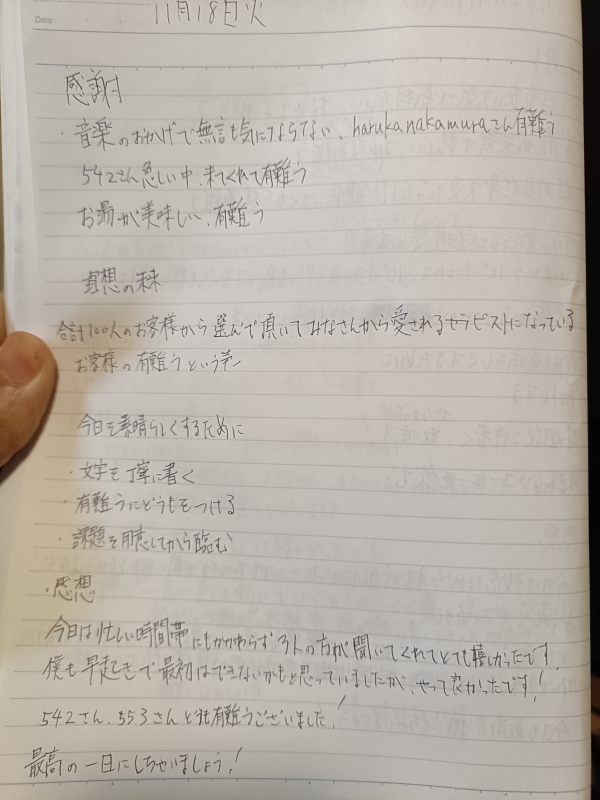 Date
11月18日火
感謝
・音楽のおかげで無言も気にならない、harukanakamuraさん有難う
542さん忽しい中、来てくれて有難う
お湯が美味しい、有難う
理想の未来
合計100人のお客様から選んで頂いてみなさんから愛されるセラピストになっている
お客様の有難うという声
今日を素晴らしくするために
・文字を丁寧に書く
・有難うにどうもをつける
・課題を用意してから臨む
・感想
今日は忙しい時間帯にもかかわらず3人の方が聞いてくれてとても嬉しかったです。
僕も早起きで最初はできないかもと思っていましたが、やって良かったです!
542さん、553さんどうも有難うございました!
最高の一日にしちゃいましょう!